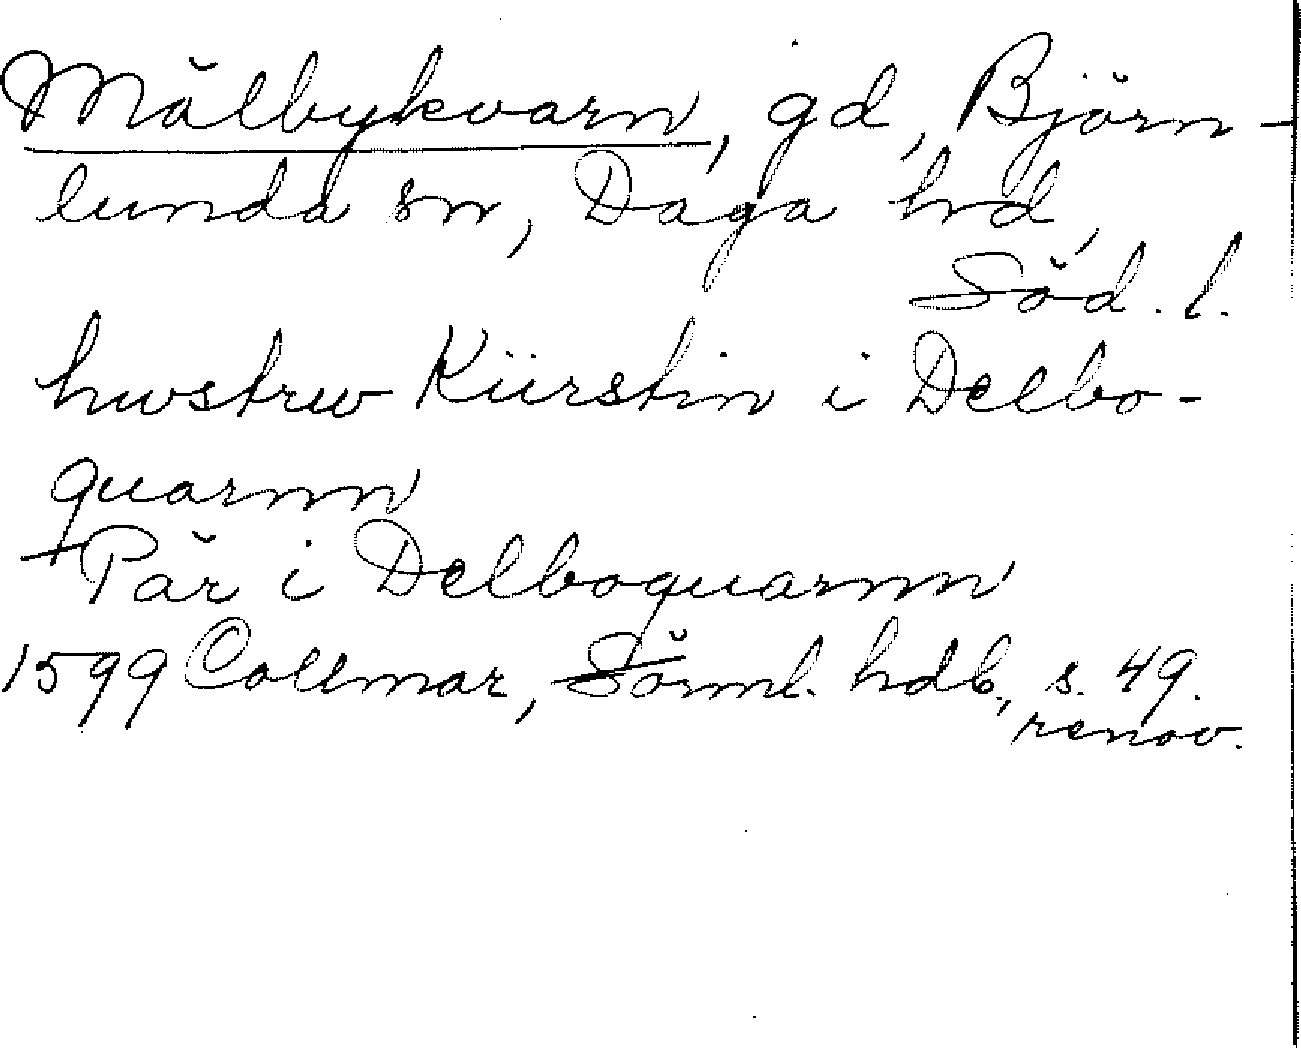 Mälbykvarn, gd, Björn-
lunda sn, Daga hd,
Söd. l.
hwstrw Kiirstin i Delbo-
quarnn
Pär i Delboquarnn
1599 Collmar, Sörml. hdb., s. 49.
renov.